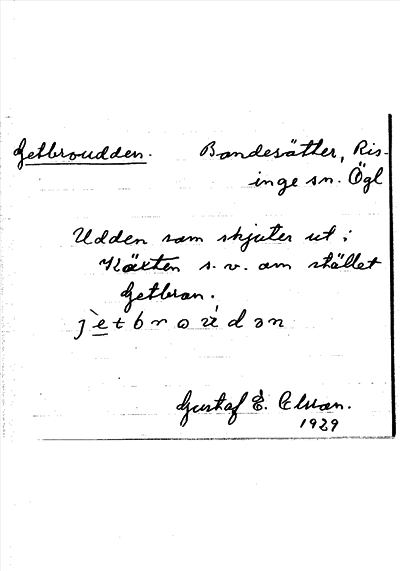 Getbroudden. Bondesätter, Ris-
inge sn. Ögl
Udden som skjuter ut i
Käxten s.v. om stället
Getbron.
jètbroúdən
Gustaf E. Elvson.
1929